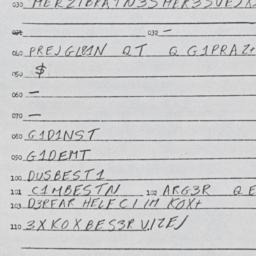 030 MERZIBRATN3SMER3SVEJX
031 032 —
040 PREJGL81N QT Q G1PRAZ+
050 $
060 —
070 —
080 G1D1NST
090 G1DEMT
100 DUSBEST1
101 C1MBESTN 102 ARG3R QE
103 D3RFAR HELFC I IM KOX+
110 3XKOXBES3R V.IZEJ